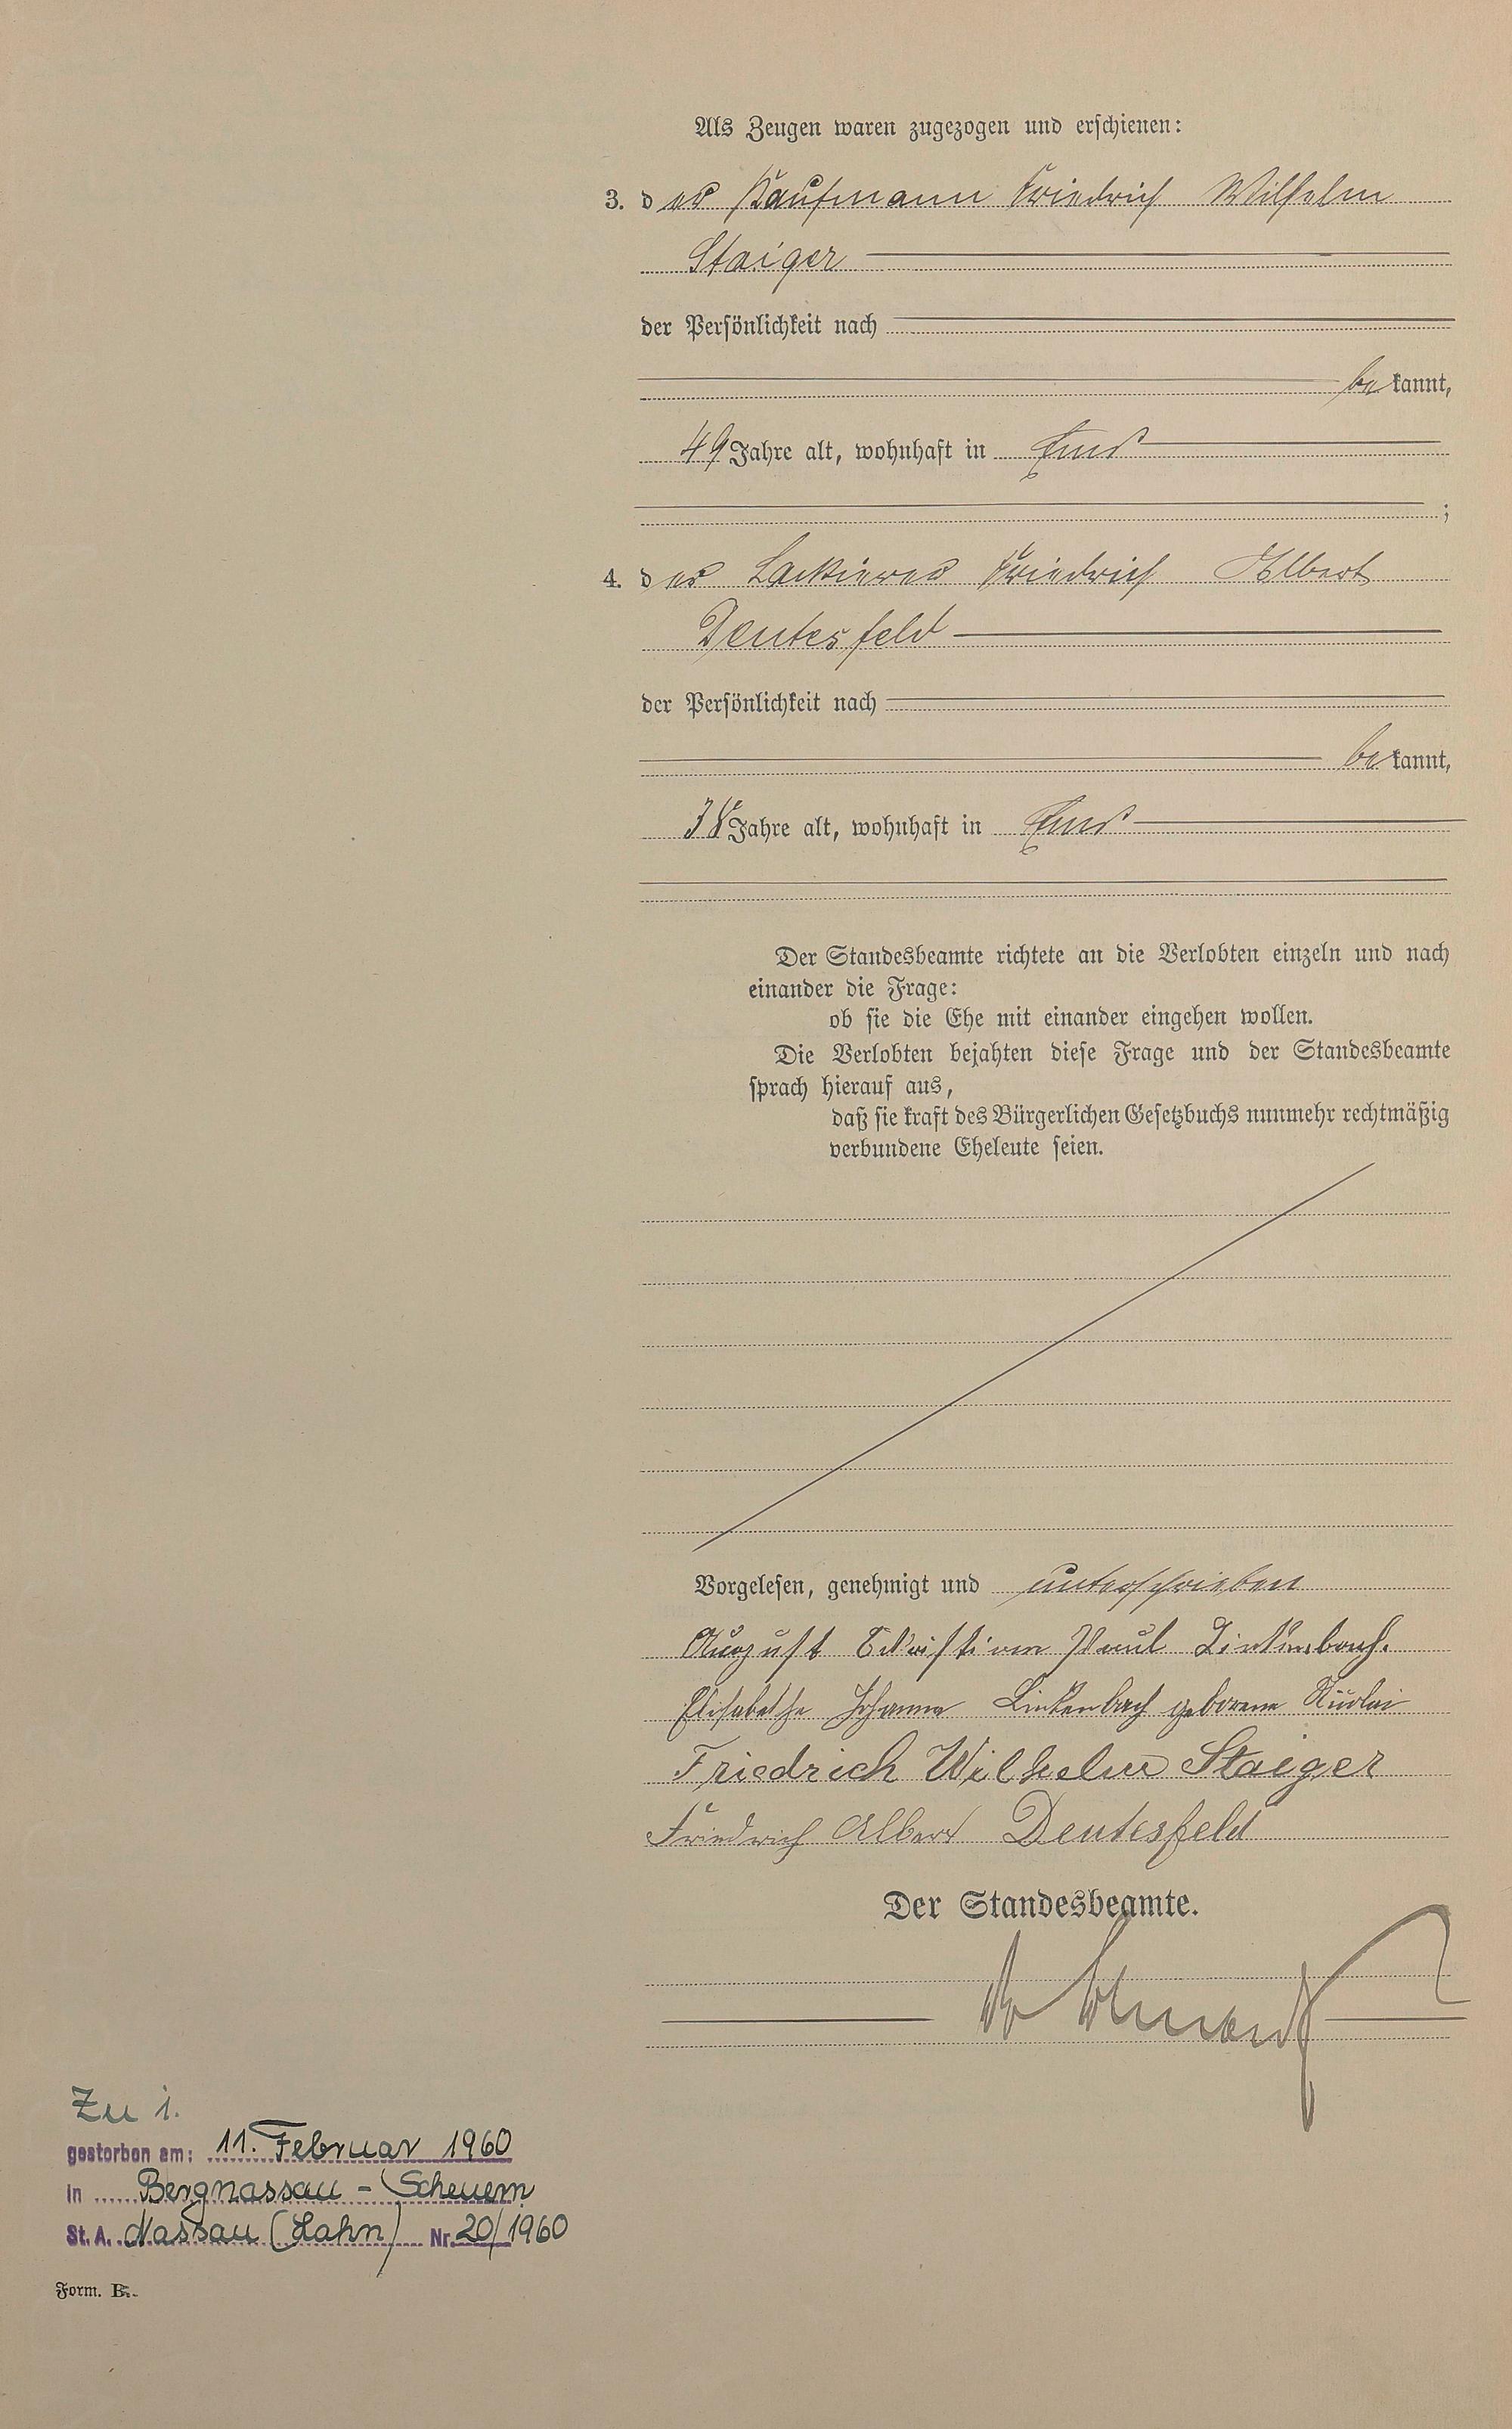 Als Zeugen waren zugezogen und erschienen:
3. der Kaufmann Friedrich Wilhelm
Staiger
der Persönlichkeit nach
bekannt,
49 Jahre alt, wohnhaft in Ems
;
4. der Lackierer Friedrich Albert
Deutesfeld
der Persönlichkeit nach
bekannt,
38 Jahre alt, wohnhaft in Ems
Der Standesbeamte richtete an die Verlobten einzeln und nach
einander die Frage:
ob sie die Ehe mit einander eingehen wollen.
Die Verlobten bejahten diese Frage und der Standesbeamte
sprach hierauf aus,
daß sie kraft des Bürgerlichen Gesetzbuchs nunmehr rechtmäßig
verbundene Eheleute seien.
Vorgelesen, genehmigt und unterschrieben
August Christian Paul Linkenbach.
Elisabethe Johanna Linkenbach geborene Nicolai
Friedrich Wilhelm Staiger
Friedrich Albert Deutesfeld
Der Standesbeamte.
Zu 1.
gestorben am: 11. Februar 1960
in Bergnassau - Scheuern
St. A. Nassau (Lahn) Nr. 20/1960
Form. B.